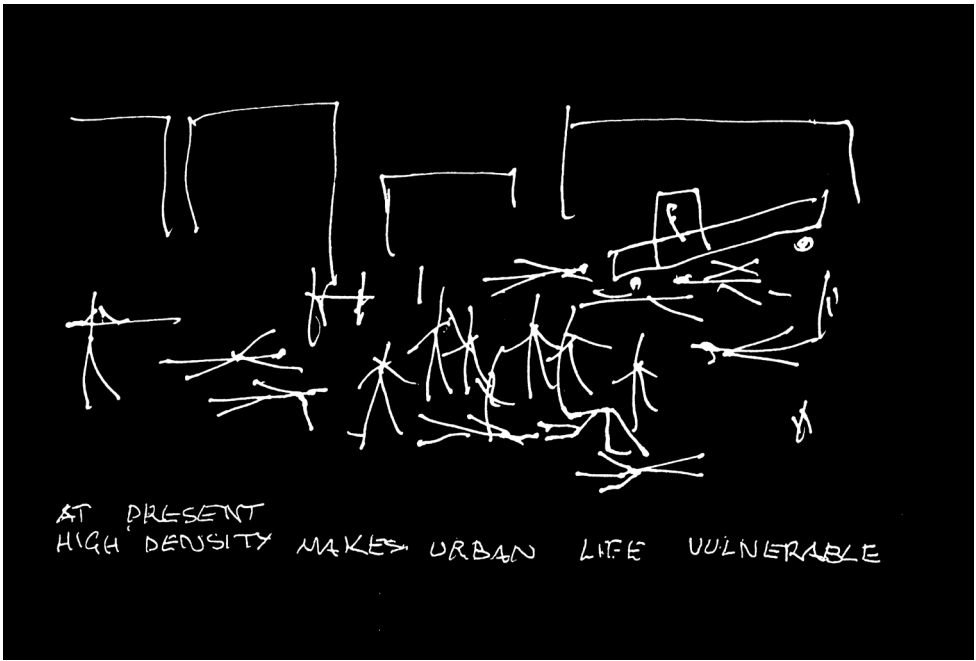 AT PRESENT
HIGH DENSITY MAKES URBAN LIFE VULNERABLE